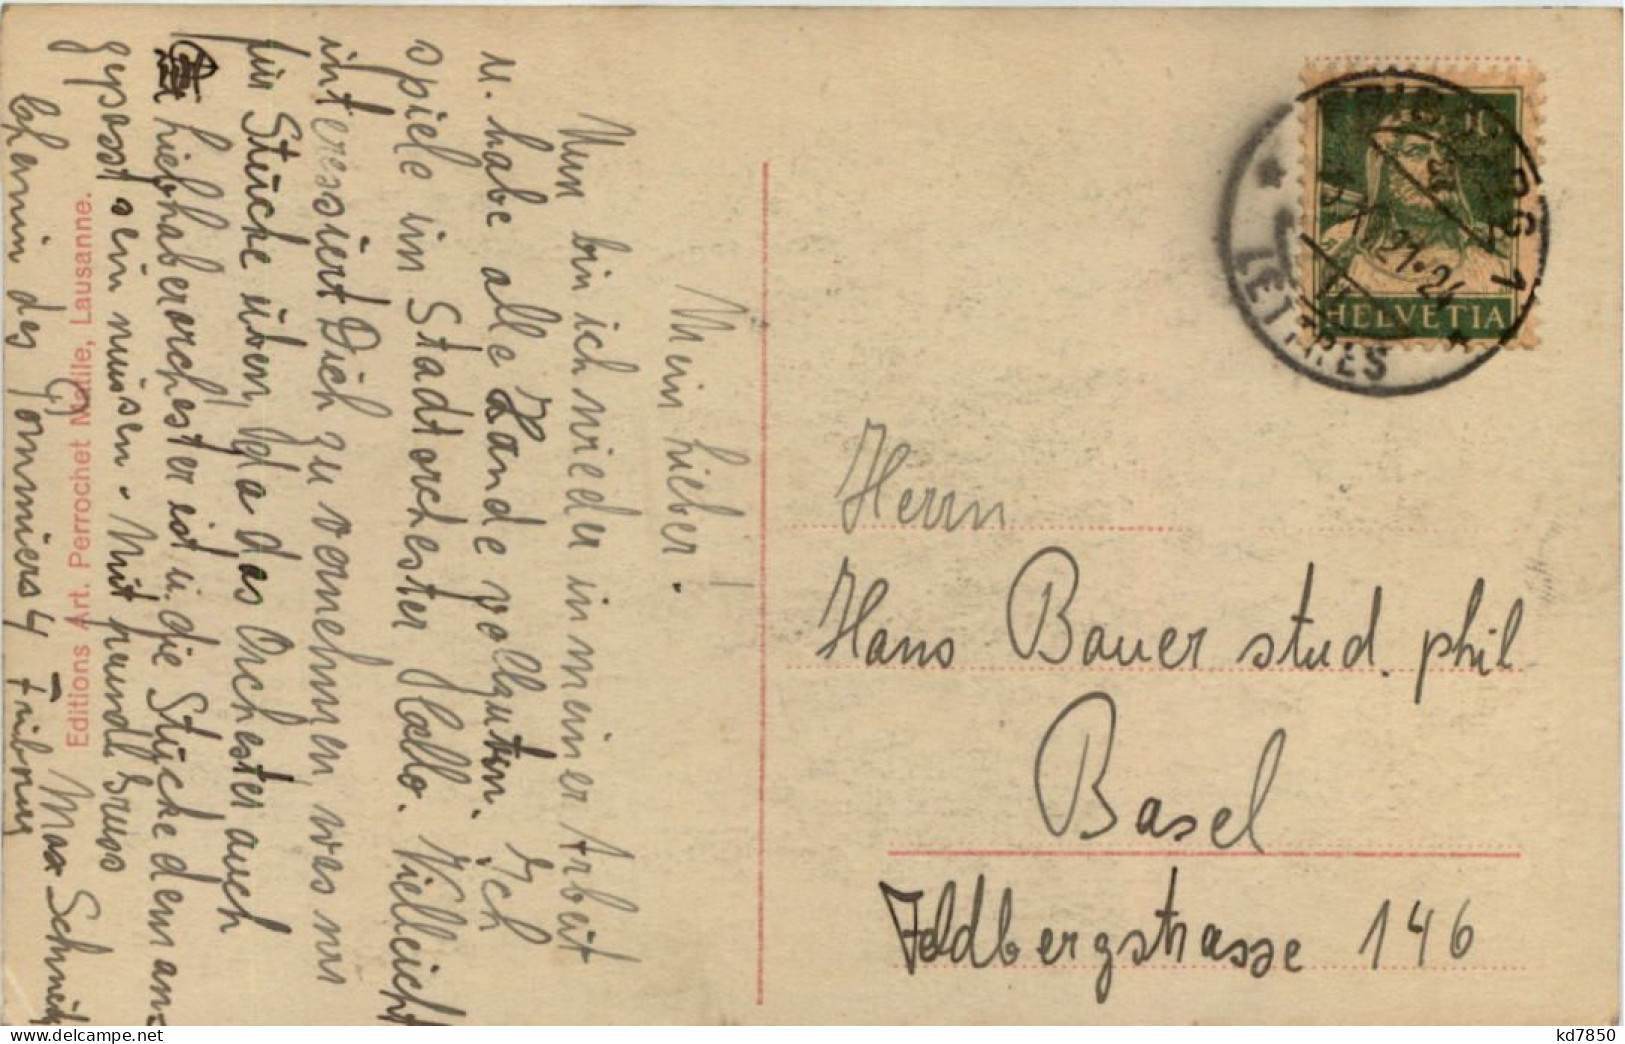 Mein Lieber!
Nun bin ich wieder in meiner Arbeit
u. habe alle Hände voll zu tun. Ich
spiele im Stadtorchester Cello. Vielleicht
interessiert Dich zu vernehmen, was wir
für Stücke üben, da das Orchester auch
Liebhaberorchester ist u. die Stücke dem an-
gepasst sein müssen. Mit freundl. Gruss
Max
Chemin des Pommiers 4 Fribourg
Editions Art. Perrochet Matile, Lausanne.
HELVETIA
10
FRIBOURG 1
21.24
LETTRES
Herrn
Hans Bauer stud. phil
Basel
Feldbergstrasse 146
kd7850